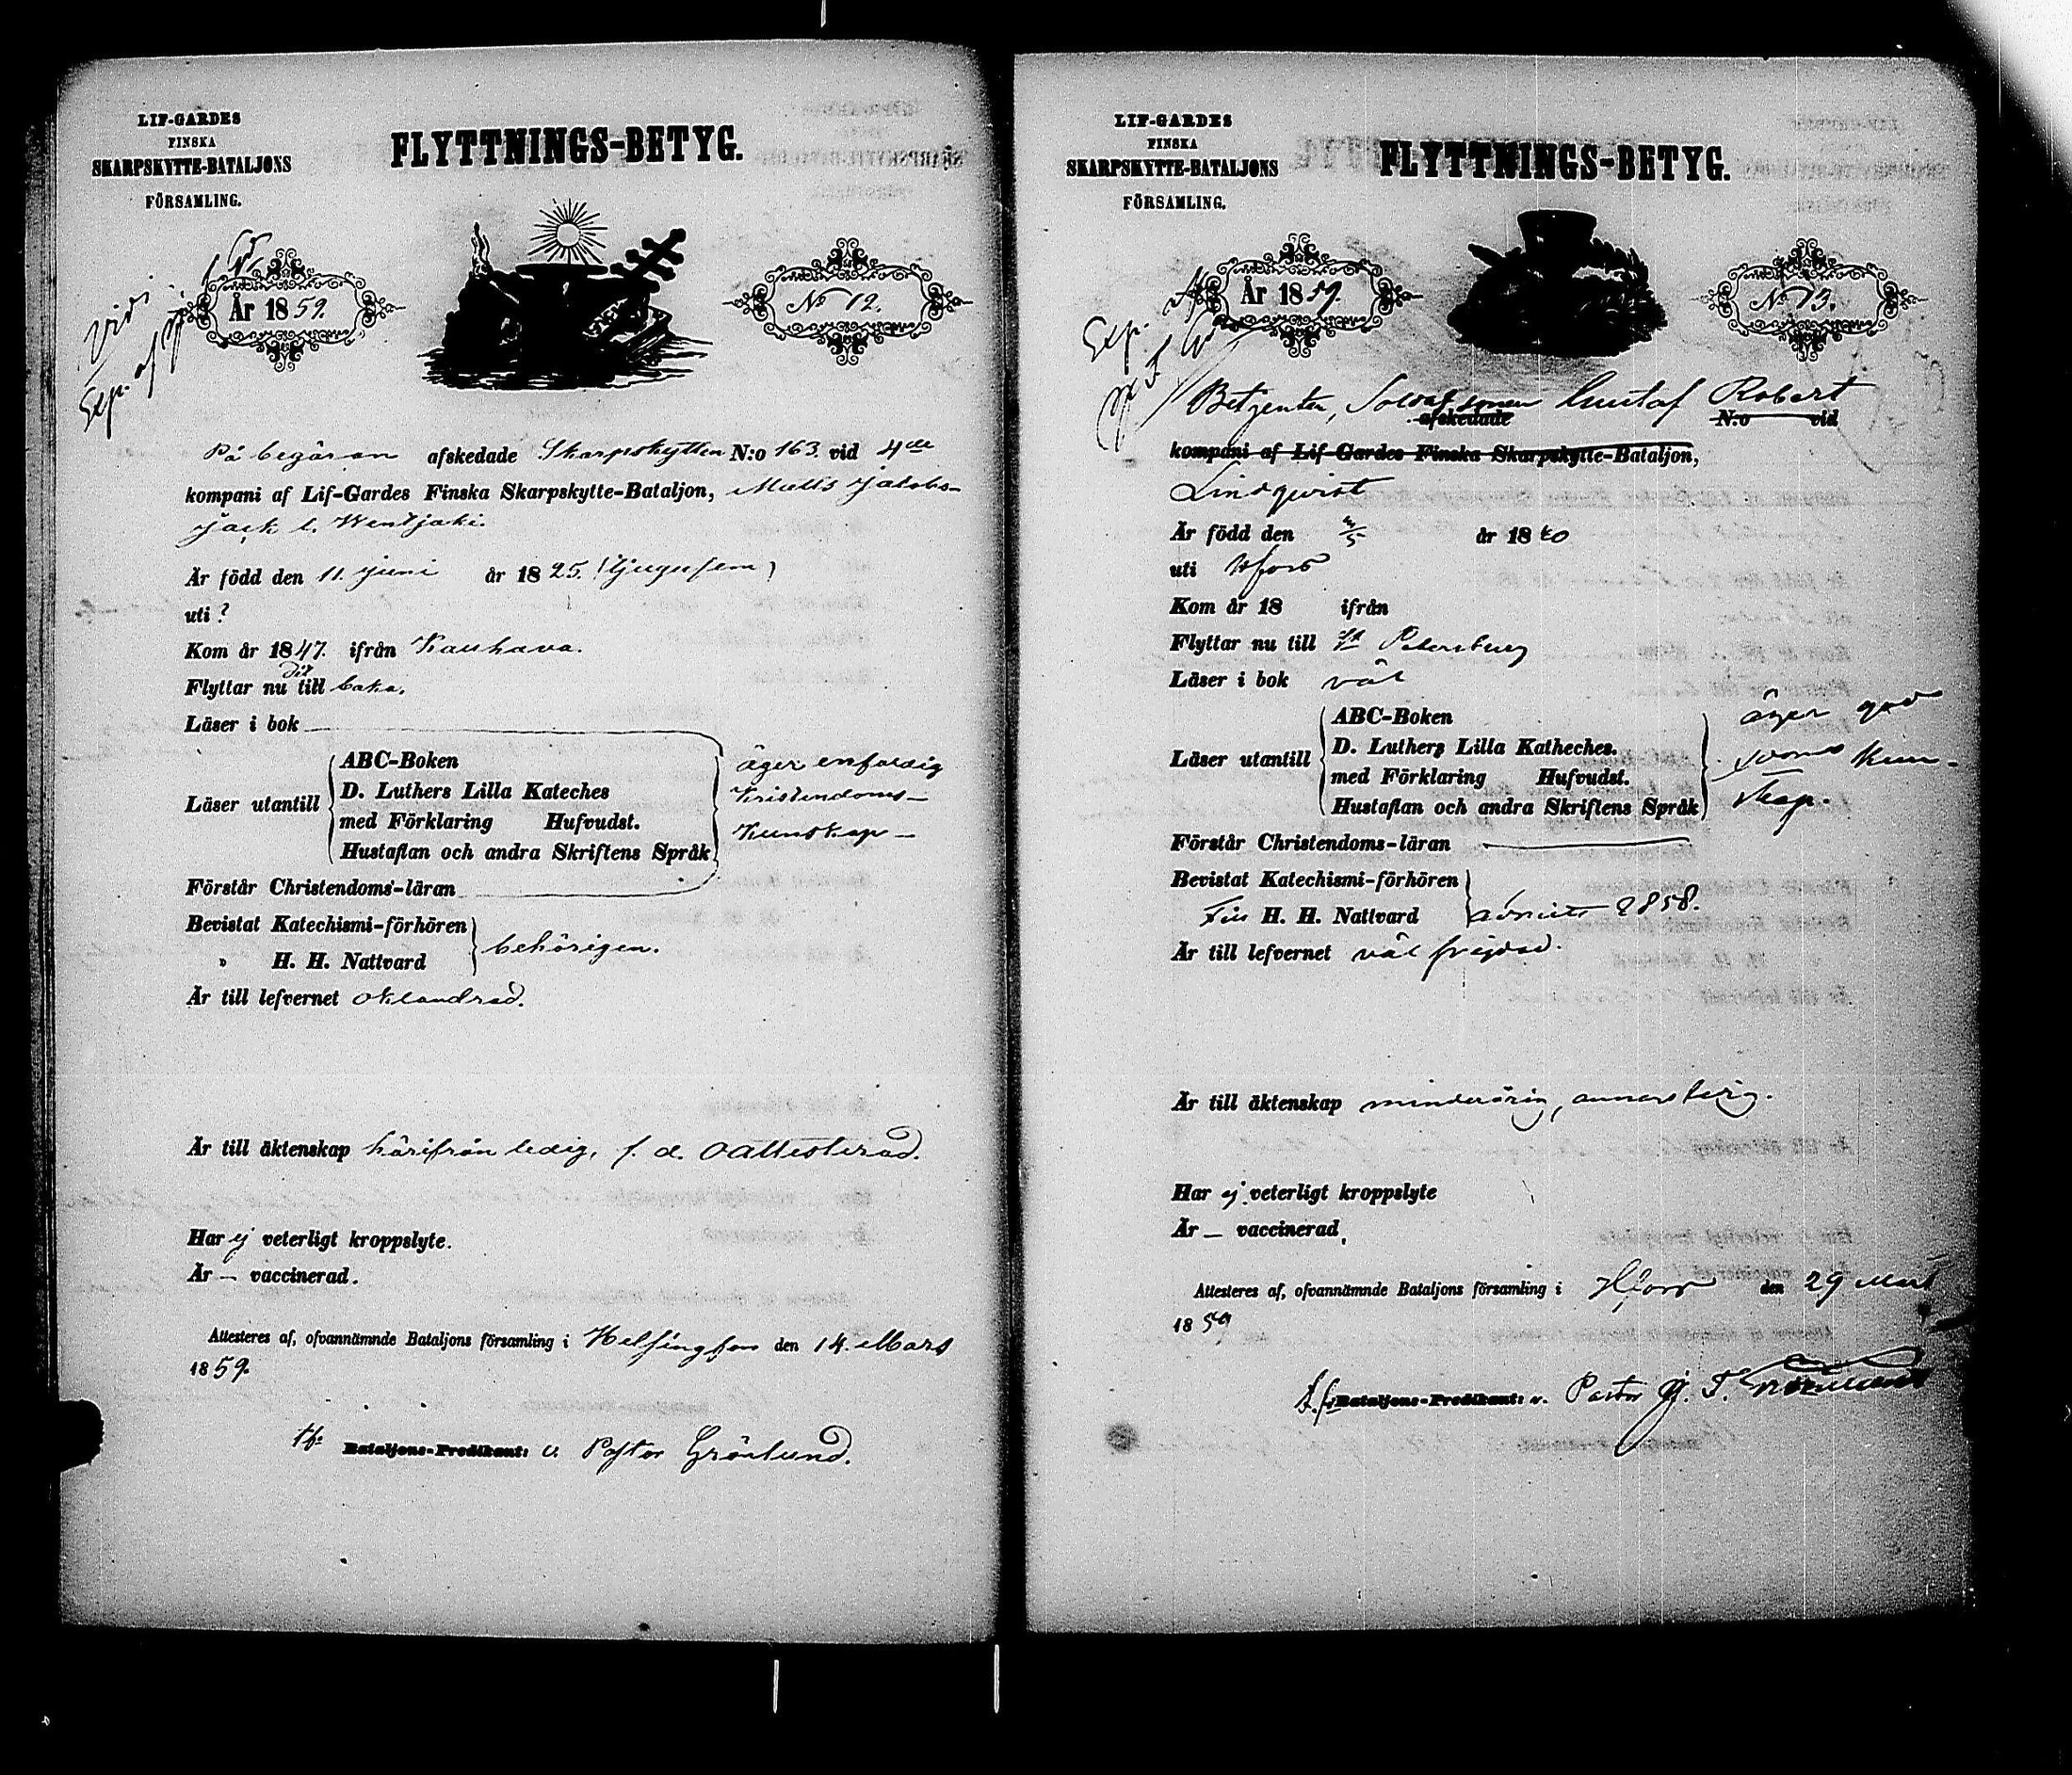 LIF-GARDES
FINSKA
SKARPSKYTTE-BATALJONS
FÖRSAMLING.
FLYTTNINGS-BETYG.
År 1859.
No 12.
Exp. af
På begäran afskedade Skarpskytten N:o 163. vid 4de
kompani af Lif-Gardes Finska Skarpskytte-Bataljon, Matts Jakobs-
Är född den 11. Juni år 1825. (tjugufem)
uti ?
Kom år 1847. ifrån Kauhava.
Flyttar nu dit till baka.
Läser i bok
Läser utantill
ABC-Boken
D. Luthers Lilla Kateches
med Förklaring Hufvudst.
Hustaflan och andra Skriftens Språk
äger enfaldig
Kristendoms-
Kunskap -
Förstår Christendoms-läran
Bevistat Katechismi-förhören
" H. H. Nattvard
behörigen.
Är till lefvernet oklandrad.
Är till äktenskap härifrån ledig, f. d. oattesterad.
Har ej veterligt kroppslyte.
Är — vaccinerad.
Attesteres af, ofvannämnde Bataljons församling i Helsingfors den 14. Mars
1859.
Bataljons-Predikant: v. Pastor Grönlund.
LIF-GARDES
FINSKA
SKARPSKYTTE-BATALJONS
FÖRSAMLING.
FLYTTNINGS-BETYG.
År 1859.
No 13.
Exp. af
Soldatsonen Gustaf Robert
afskedade N:o vid
kompani af Lif-Gardes Finska Skarpskytte-Bataljon,
Lindqvist
Är född den år 1840
uti Hfors
Kom år 18 ifrån
Flyttar nu till St Petersburg
Läser i bok väl
Läser utantill
ABC-Boken
D. Luthers Lilla Katheches.
med Förklaring Hufvudst.
Hustaflan och andra Skriftens Språk
äger god
kun-
skap.
Förstår Christendoms-läran
Bevistat Katechismi-förhören
H. H. Nattvard
1858.
Är till lefvernet väl frejdad.
Är till äktenskap minderårig, annars ledig.
Har ej veterligt kroppslyte
Är — vaccinerad
Attesteres af, ofvannämnde Bataljons församling i Hfors den 29 Mars
1859
Bataljons-Predikant: v. Pastor J. F. Grönlund